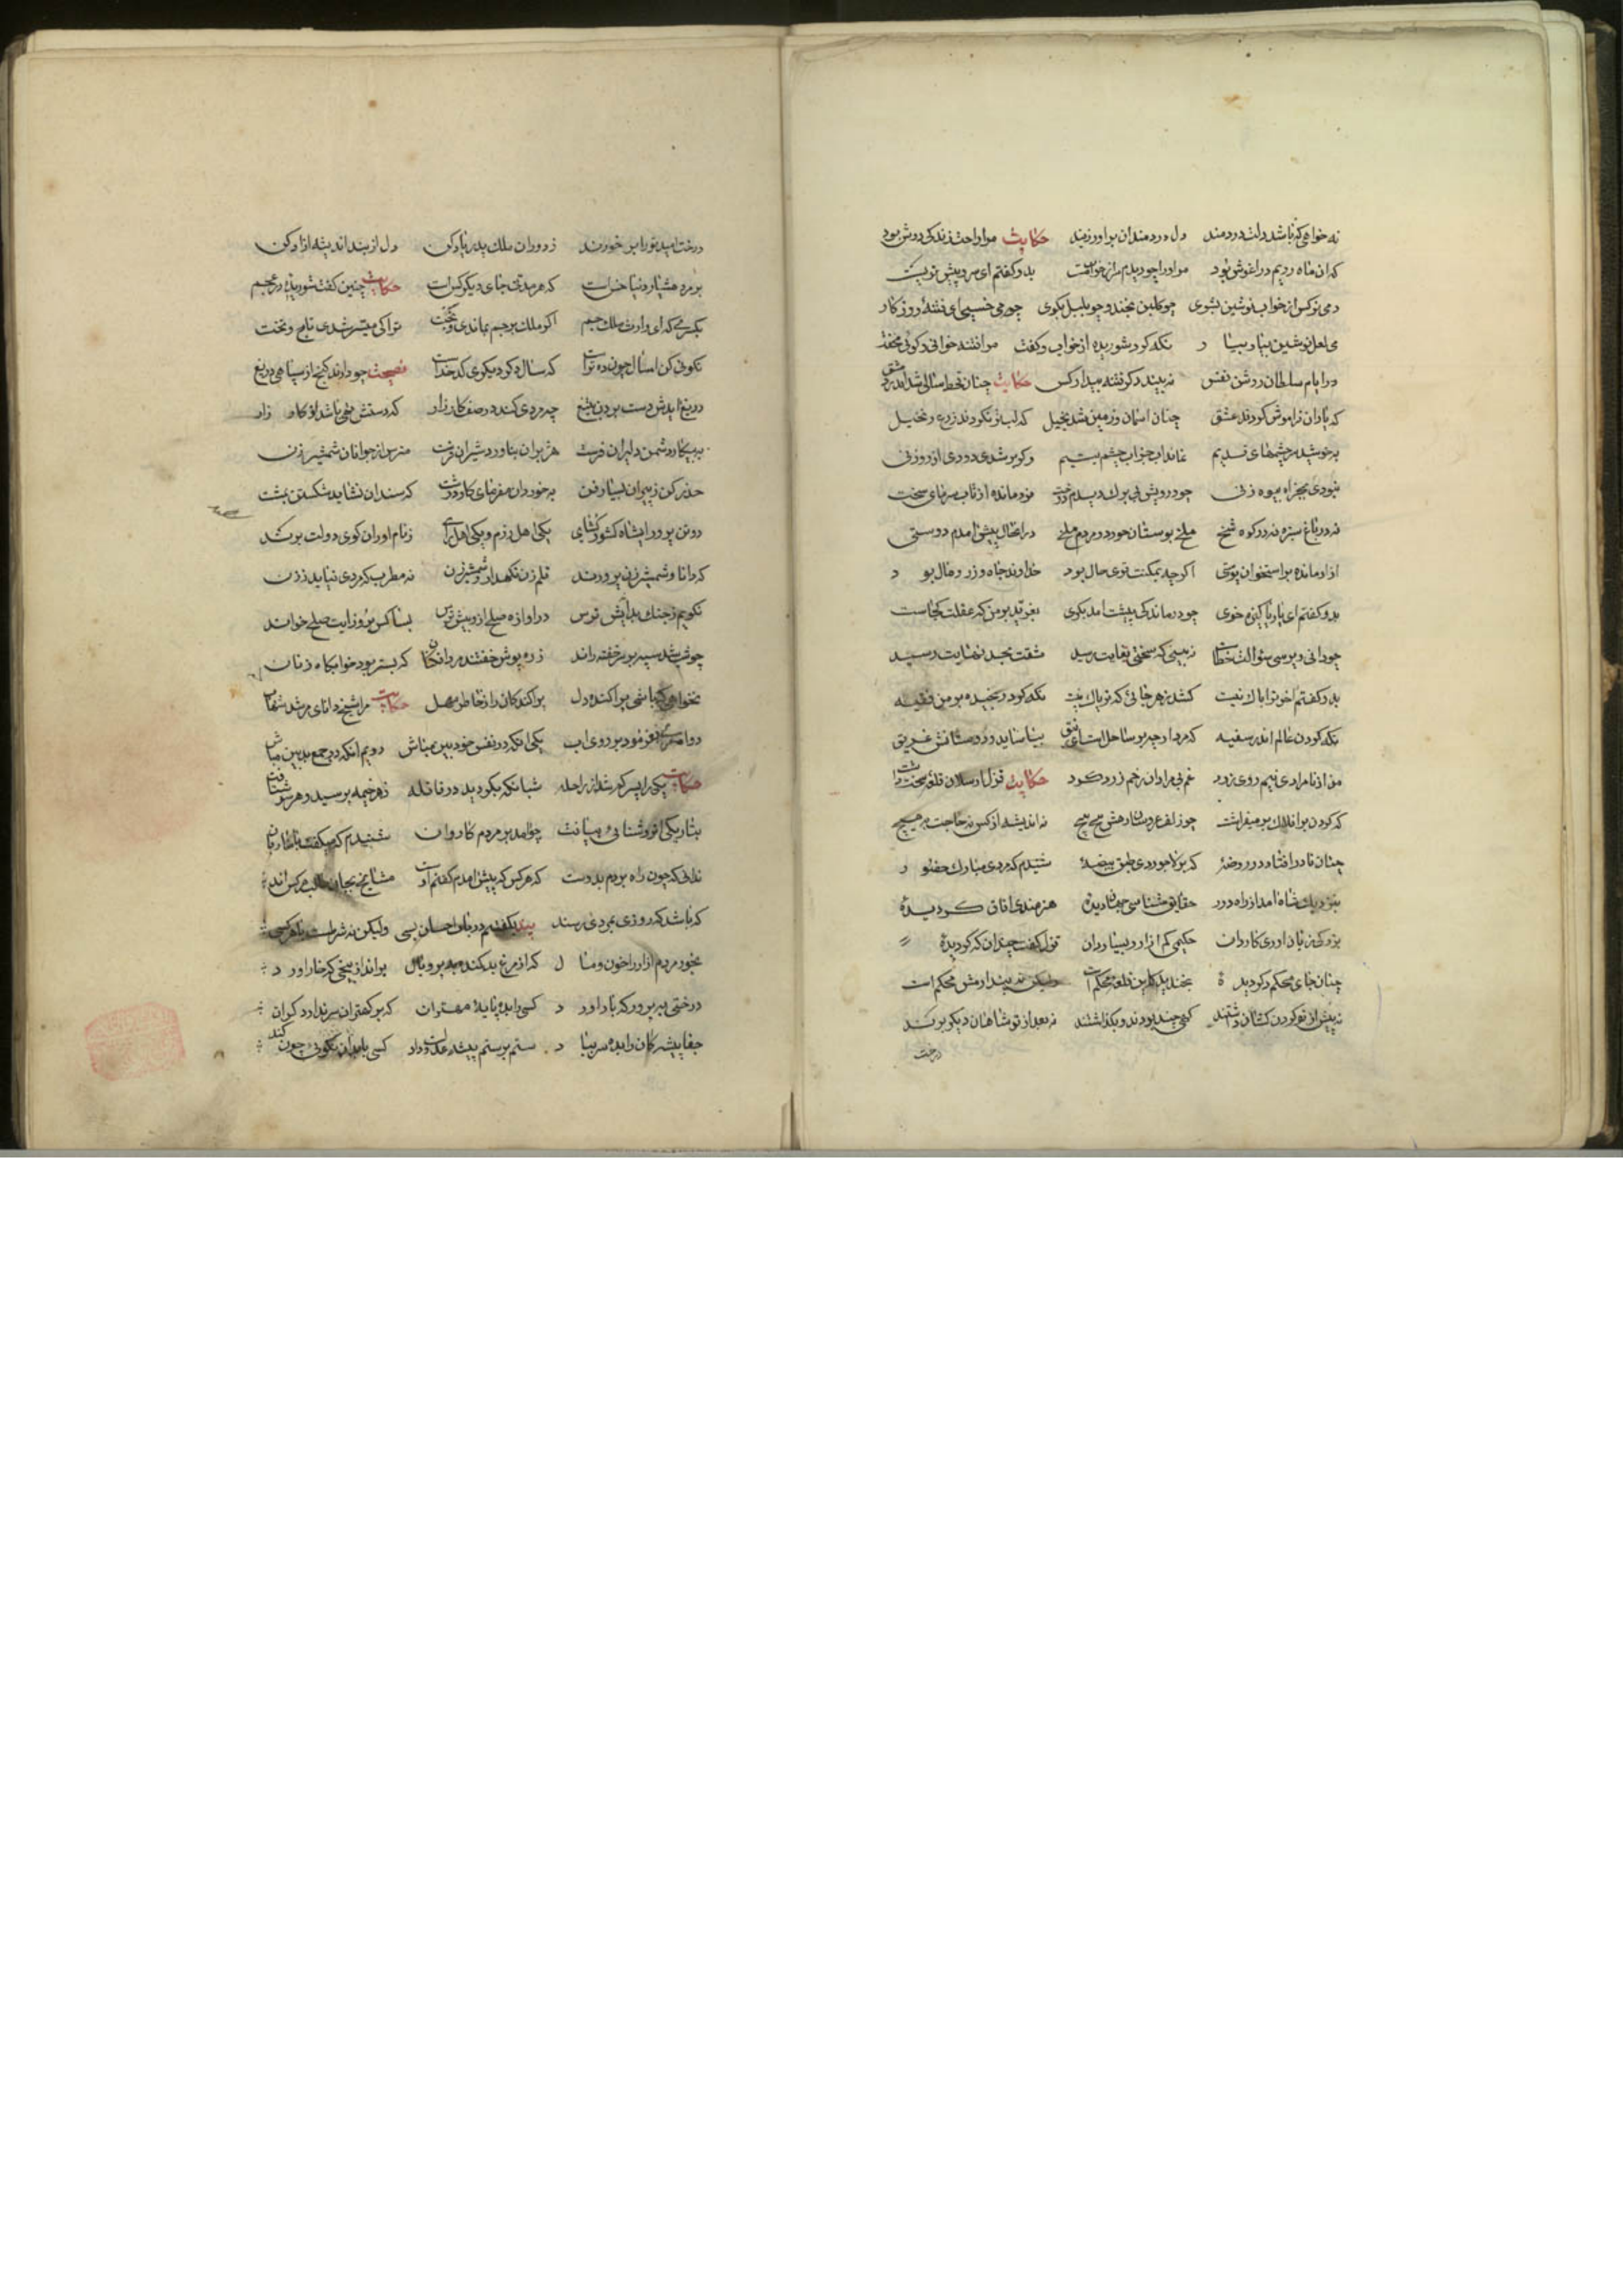 نه خواهی که باشد دلت دردمند دل دردمندان براور زبند حکایت مرا راحت زندکی دوش بود
که ان ماه رویم در اغوش بود مر او را چو دیدم سر از خواب مست بدو کفتم ای سرو پیش تو پست
دمی نرکس از خواب نوشین بشوی چو کلبن بخند و چو بلبل بکوی چه می خسبی ای فتنه روزکار
می لعل نوشین بیا و بیار نکه کرد شوریده از خواب و کفت مرا فتنه خوانی و کوئی مخفت
در ایام سلطان روشن نفس نه بیند دکر فتنه بیدار کس حکایت چنان قحط سالی شد اندر دمشق
که یاران فراموش کردند عشق چنان اسمان بر زمین شد بخیل که لب تر نکردند زرع و نخیل
بخوشید سرچشمهای قدیم نماند اب جز اب چشم یتیم وکر بر شدی دودی از روزنی
نبودی بجز اه بیوه زنی چو درویش بی برک دیدم درخت فرو مانده از تاب سرمای سخت
نه در باغ سبزه نه در کوه شخ ملخ بوستان خورد و مردم ملخ در انحال پیش امدم دوستی
ازو مانده بر استخوان پوستی اکرچه بمکنت قوی حال بود خداوند جاه و زر و مال بود
بدو کفتم ای یار پاکیزه خوی چه درماندکی پیشت امد بکوی بغرید بر من که عقلت کجاست
چو دانی و پرسی سئوالت خطاست نه بینی که سختی بغایت رسید مشقت بحد نهایت رسید
بدو کفتم اخر ترا باک نیست کشد زهر جائی که تریاک نیست نکه کرد رنجیده بر من فقیه
نکه کردن عالم اندر سفیه که مرد ارچه بر ساحل است ای رفیق نیاساید و دوستانش غریق
من از نامرادی نیم روی زرد غم بی مرادان رخم زرد کرد حکایت قزل ارسلان قلعه سخت داشت
که کردن بر افلاک بر میفراشت چو زلف عروسان رهش پیچ پیچ نه اندیشه از کس نه حاجت به هیچ
چنان نادر افتاده در روضهٔ که بر لاجوردی طبق بیضهٔ شنیدم که مردی مبارک حضور
بنزدیک شاه امد از راه دور حقایق شناسی جهاندیدهٔ هنرمندی افاق کردیدهٔ
بزرکی زبان اوری کاردان حکیمی سخن کوی بسیار دان قزل کفت چندان که کردیدهٔ
چنان جای محکم دکر دیدهٔ بخندید کاین قلعه محکم است ولیکن نه پندارمش محکم است
نه پیش از تو کردن کشان داشتند کهی چند بودند و بکذاشتند نه بعد از تو شاهان دیکر برند
درخت
درخت امید تو را بر خورند ز دوران ملک پدر یاد کن دل از بند اندیشه ازاد کن
بر مرد هشیار دنیا خس است که هر مدتی جای دیکر کس است حکایت چنین کفت شوریدهٔ در عجم
بکسری که ای وارث ملک جم اکر ملک بر جم بماندی و بخت ترا کی میسر شدی تاج و تخت
نکوئی کن امسال چون ده تراست که سال دکر دیکری کدخداست نصیحت چو دارند کنج از سپاهی دریغ
دریغ ایدش دست بردن بتیغ چه مردی کند در صف کارزار که دستش تهی باشد از کارزار
به پیکار دشمن دلیران فرست هژبران بناورد شیران فرست مترس از جوانان شمشیر زن
حذر کن ز پیران بسیار فن بخردان مفرمای کار درشت که سندان نشاید شکستن بمشت
دو تن پرور ای شاه کشور کشای یکی اهل رزم و یکی اهل رای ز نام اوران کوی دولت برند
که دانا و شمشیر زن پرورند قلم زن نکهدار و شمشیر زن نه مطرب که مردی نیاید ز زن
نکویم ز جنک بد اندیش ترس در اوازه صلح ازو بیش ترس بسا کس بروز ایت صلح خواند
چو شب شد سپه بر سر خفته راند زره پوش خفتند مردانکان که بستر بود خوابکاه زنان
نخواهی که باشی پراکنده دل پراکندکان را ز خاطر مهل حکایت مرا شیخ دانای مرشد شهاب
دو اندرز فرمود بر روی اب یکی انکه در نفس خود بین مباش دویم انکه در جمع بد بین مباش
حکایت یکی را پسر کم شد از راحله شبانکه بکردید در قافله ز هر خیمه پرسید و هر سو شتافت
بتاریکی ان روشنائی بیافت چو امد بر مردم کاروان شنیدم که میکفت با ساربان
ندانی که چون راه بردم بدوست که هر کس که پیش امدم کفتم اوست مشایخ بجان طالب هر کس اند
که باشد که روزی بمردی رسند پند بکفتیم در باب احسان بسی ولیکن نه شرط است با هر کسی
بخور مردم ازار را خون و مال که از مرغ بد کنده به پر و بال بر انداز بیخی که خار اورد
درختی بپرور که بار اورد کسی را بده پایهٔ مهتران که بر کهتران سر ندارد کران
جفا پیشه کان را بده سر بباد ستم بر ستم پیشه عدلست و داد کسی با بدان نکوئی چون کند